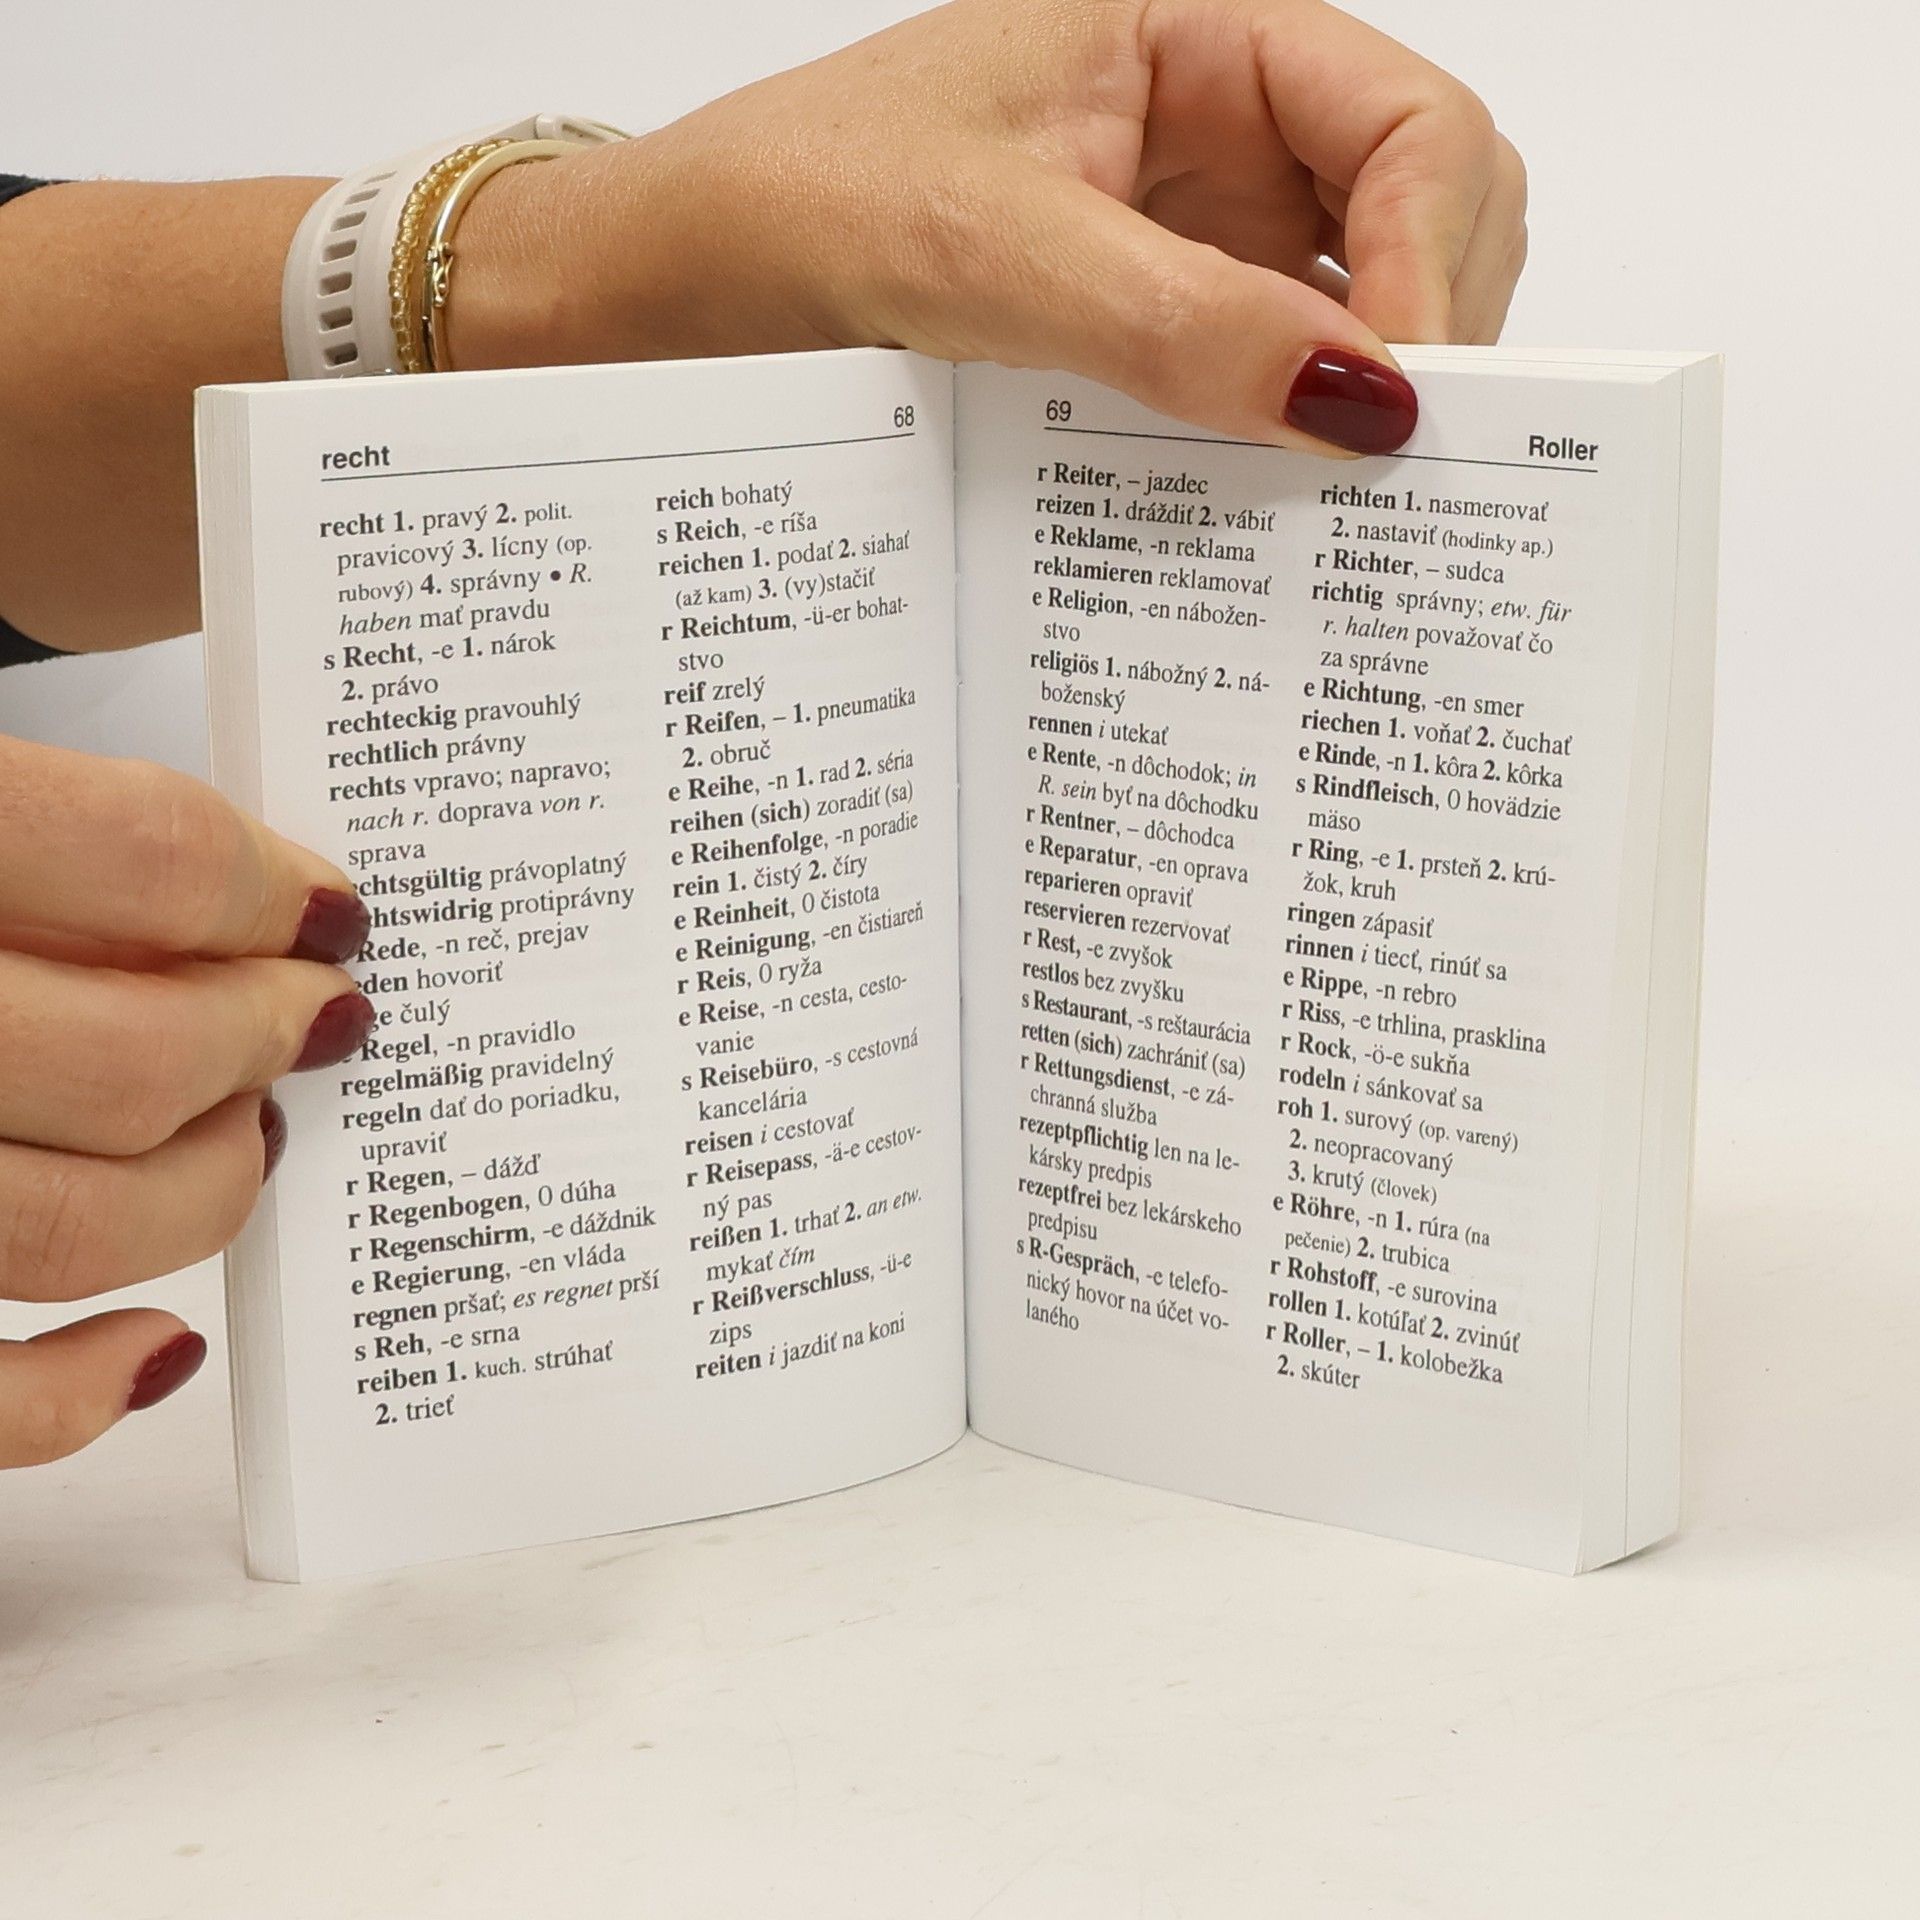 recht
68
recht 1. pravý 2. polit.
pravicový 3. lícny (op.
rubový) 4. správny • R.
haben mať pravdu
s Recht, -e 1. nárok
2. právo
rechteckig pravouhlý
rechtlich právny
rechts vpravo; napravo;
nach r. doprava von r.
sprava
chtsgültig právoplatný
htswidrig protiprávny
Rede, -n reč, prejav
den hovoriť
ge čulý
e Regel, -n pravidlo
regelmäßig pravidelný
regeln dať do poriadku,
upraviť
r Regen, – dážď
r Regenbogen, 0 dúha
r Regenschirm, -e dáždnik
e Regierung, -en vláda
regnen pršať; es regnet prší
s Reh, -e srna
reiben 1. kuch. strúhať
2. trieť
reich bohatý
s Reich, -e ríša
reichen 1. podať 2. siahať
(až kam) 3. (vy)stačiť
r Reichtum, -ü-er bohat-
stvo
reif zrelý
r Reifen, – 1. pneumatika
2. obruč
e Reihe, -n 1. rad 2. séria
reihen (sich) zoradiť (sa)
e Reihenfolge, -n poradie
rein 1. čistý 2. číry
e Reinheit, 0 čistota
e Reinigung, -en čistiareň
r Reis, 0 ryža
e Reise, -n cesta, cesto-
vanie
s Reisebüro, -s cestovná
kancelária
reisen i cestovať
r Reisepass, -ä-e cestov-
ný pas
reißen 1. trhať 2. an etw.
mykať čím
r Reißverschluss, -ü-e
zips
reiten i jazdiť na koni
69
Roller
r Reiter, – jazdec
reizen 1. dráždiť 2. vábiť
e Reklame, -n reklama
reklamieren reklamovať
e Religion, -en nábožen-
stvo
religiös 1. nábožný 2. ná-
boženský
rennen i utekať
e Rente, -n dôchodok; in
R. sein byť na dôchodku
r Rentner, – dôchodca
e Reparatur, -en oprava
reparieren opraviť
reservieren rezervovať
r Rest, -e zvyšok
restlos bez zvyšku
s Restaurant, -s reštaurácia
retten (sich) zachrániť (sa)
r Rettungsdienst, -e zá-
chranná služba
rezeptpflichtig len na le-
kársky predpis
rezeptfrei bez lekárskeho
predpisu
s R-Gespräch, -e telefo-
nický hovor na účet vo-
laného
richten 1. nasmerovať
2. nastaviť (hodinky ap.)
r Richter, – sudca
richtig správny; etw. für
r. halten považovať čo
za správne
e Richtung, -en smer
riechen 1. voňať 2. čuchať
e Rinde, -n 1. kôra 2. kôrka
s Rindfleisch, 0 hovädzie
mäso
r Ring, -e 1. prsteň 2. krú-
žok, kruh
ringen zápasiť
rinnen i tiecť, rinúť sa
e Rippe, -n rebro
r Riss, -e trhlina, prasklina
r Rock, -ö-e sukňa
rodeln i sánkovať sa
roh 1. surový (op. varený)
2. neopracovaný
3. krutý (človek)
e Röhre, -n 1. rúra (na
pečenie) 2. trubica
r Rohstoff, -e surovina
rollen 1. kotúľať 2. zvinúť
r Roller, – 1. kolobežka
2. skúter